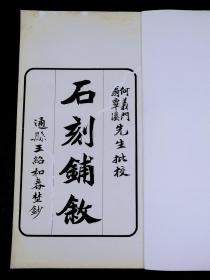 何義門
翁覃溪
先生批校
石刻鋪敘
通縣王紹和春埜鈔